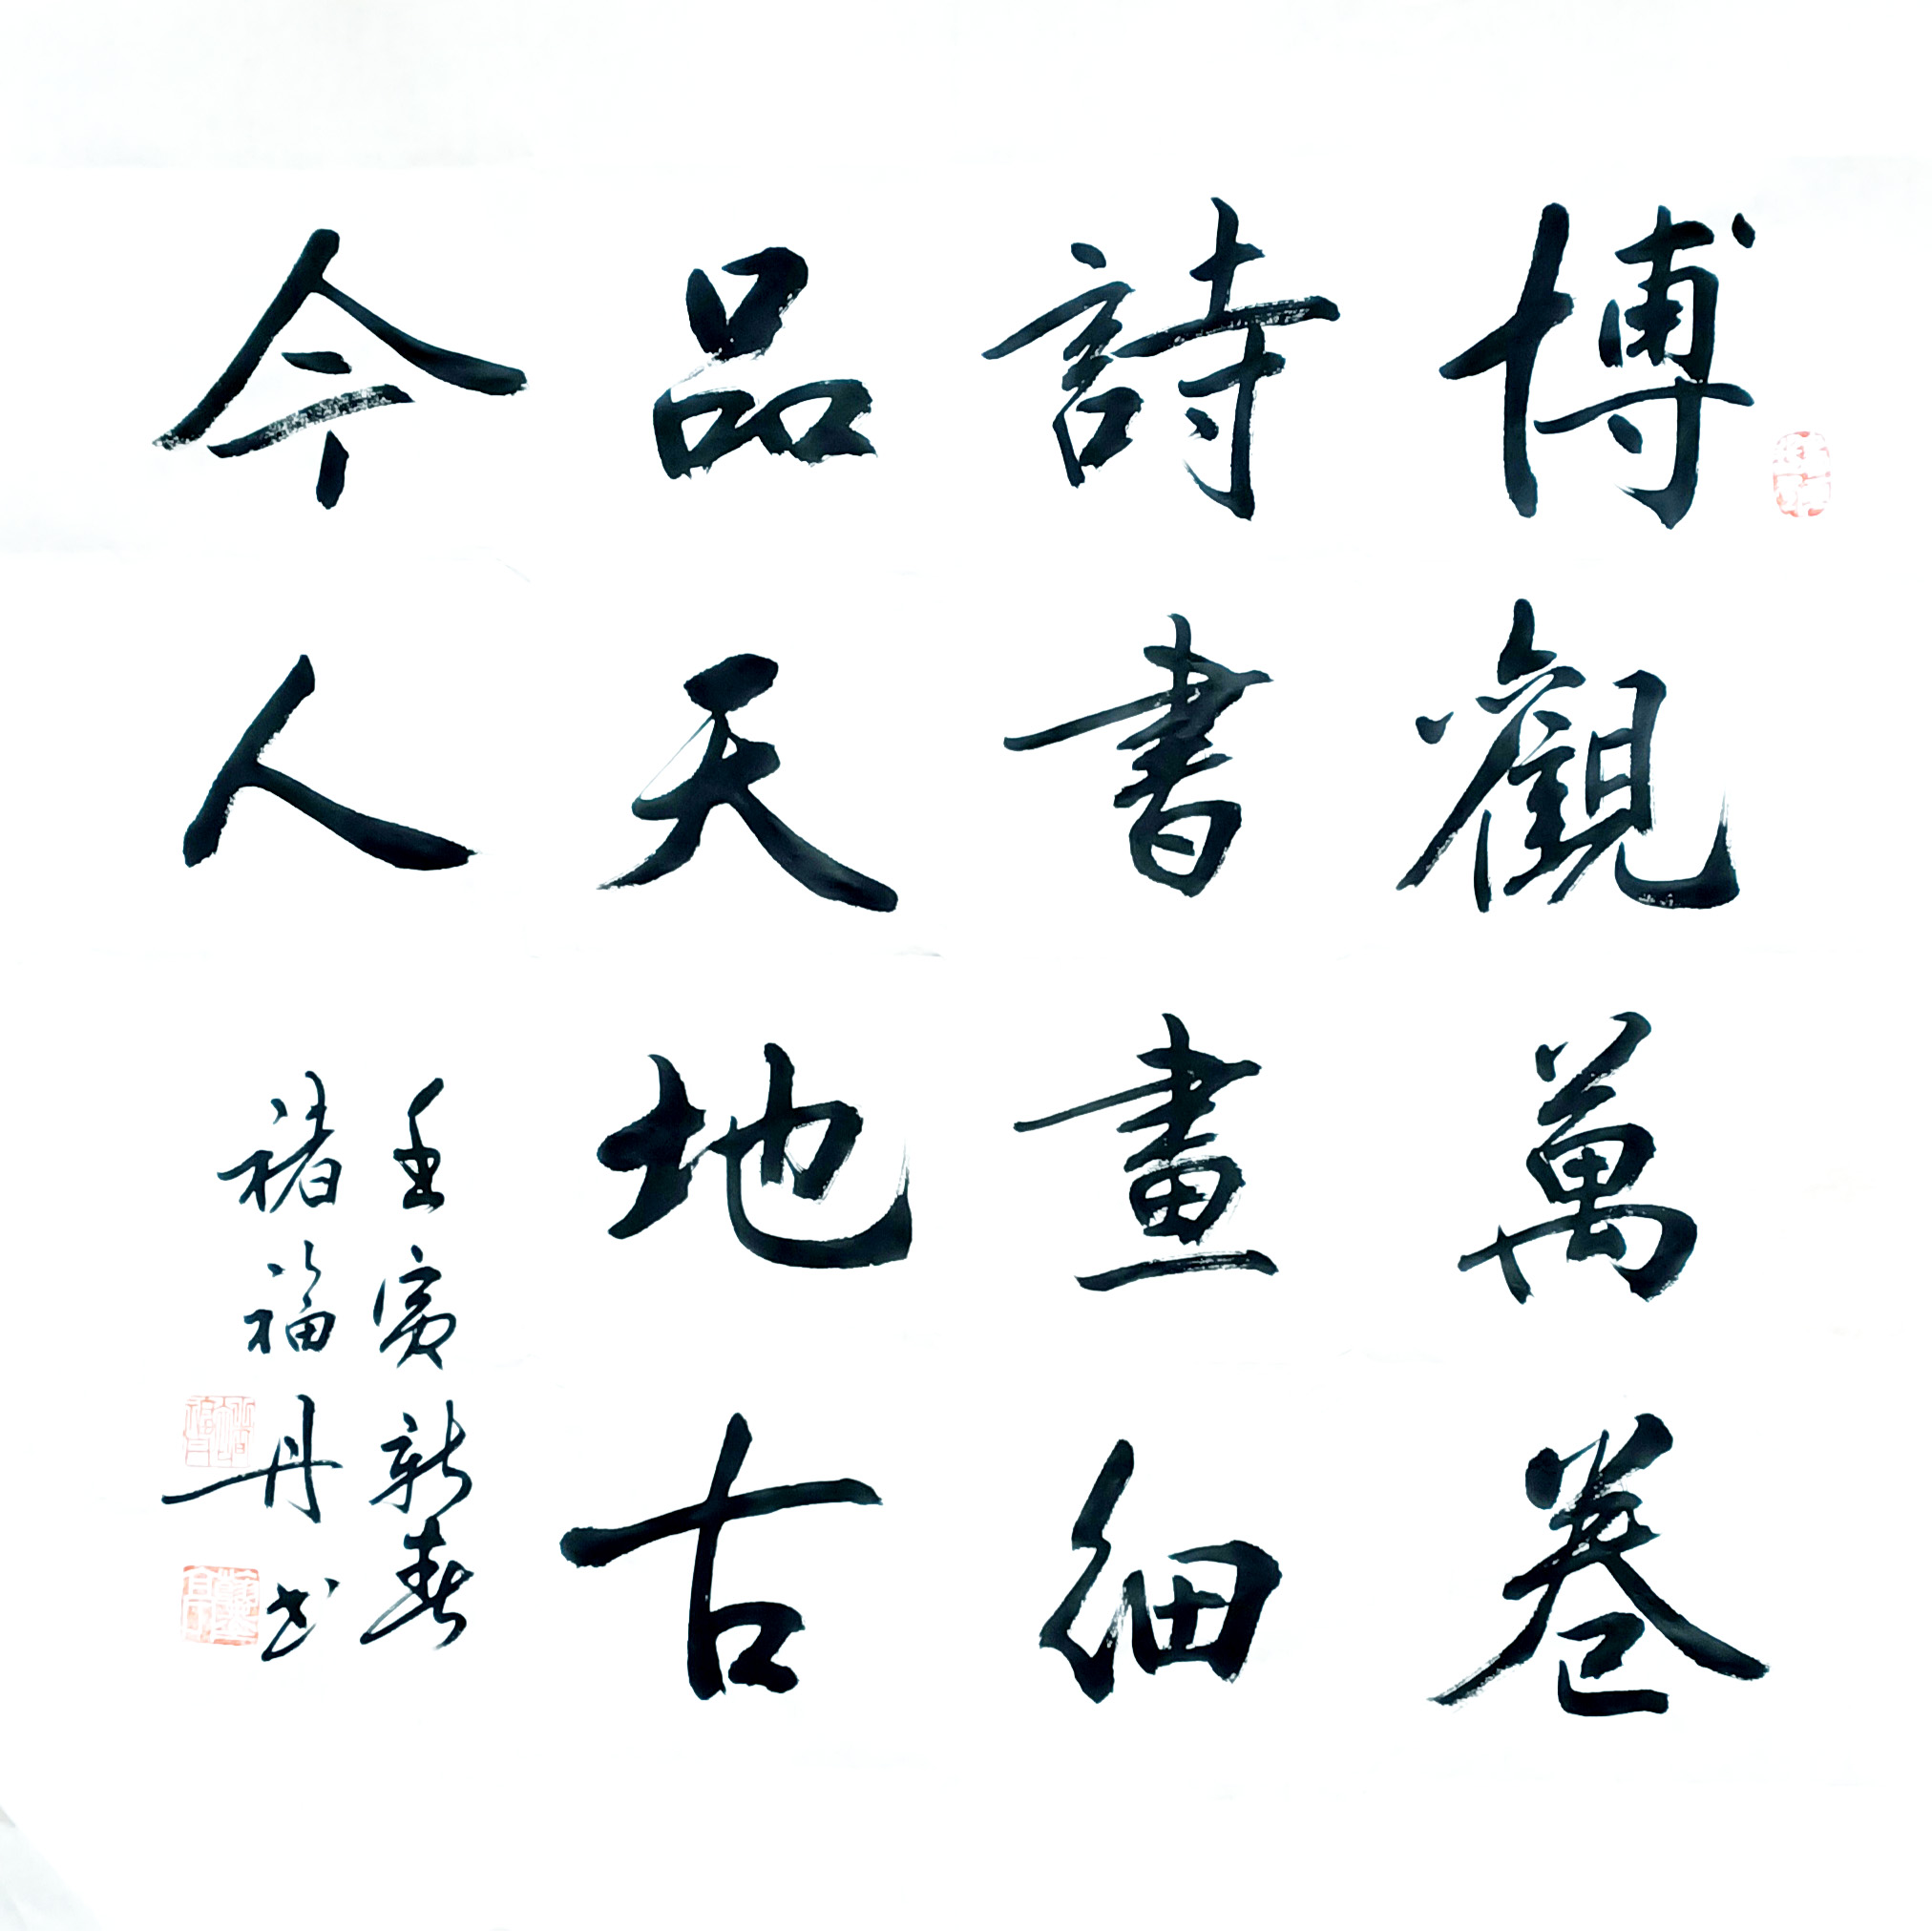 博觀萬卷
詩書畫細
品天地古
今人
壬寅新春
褚福丹书